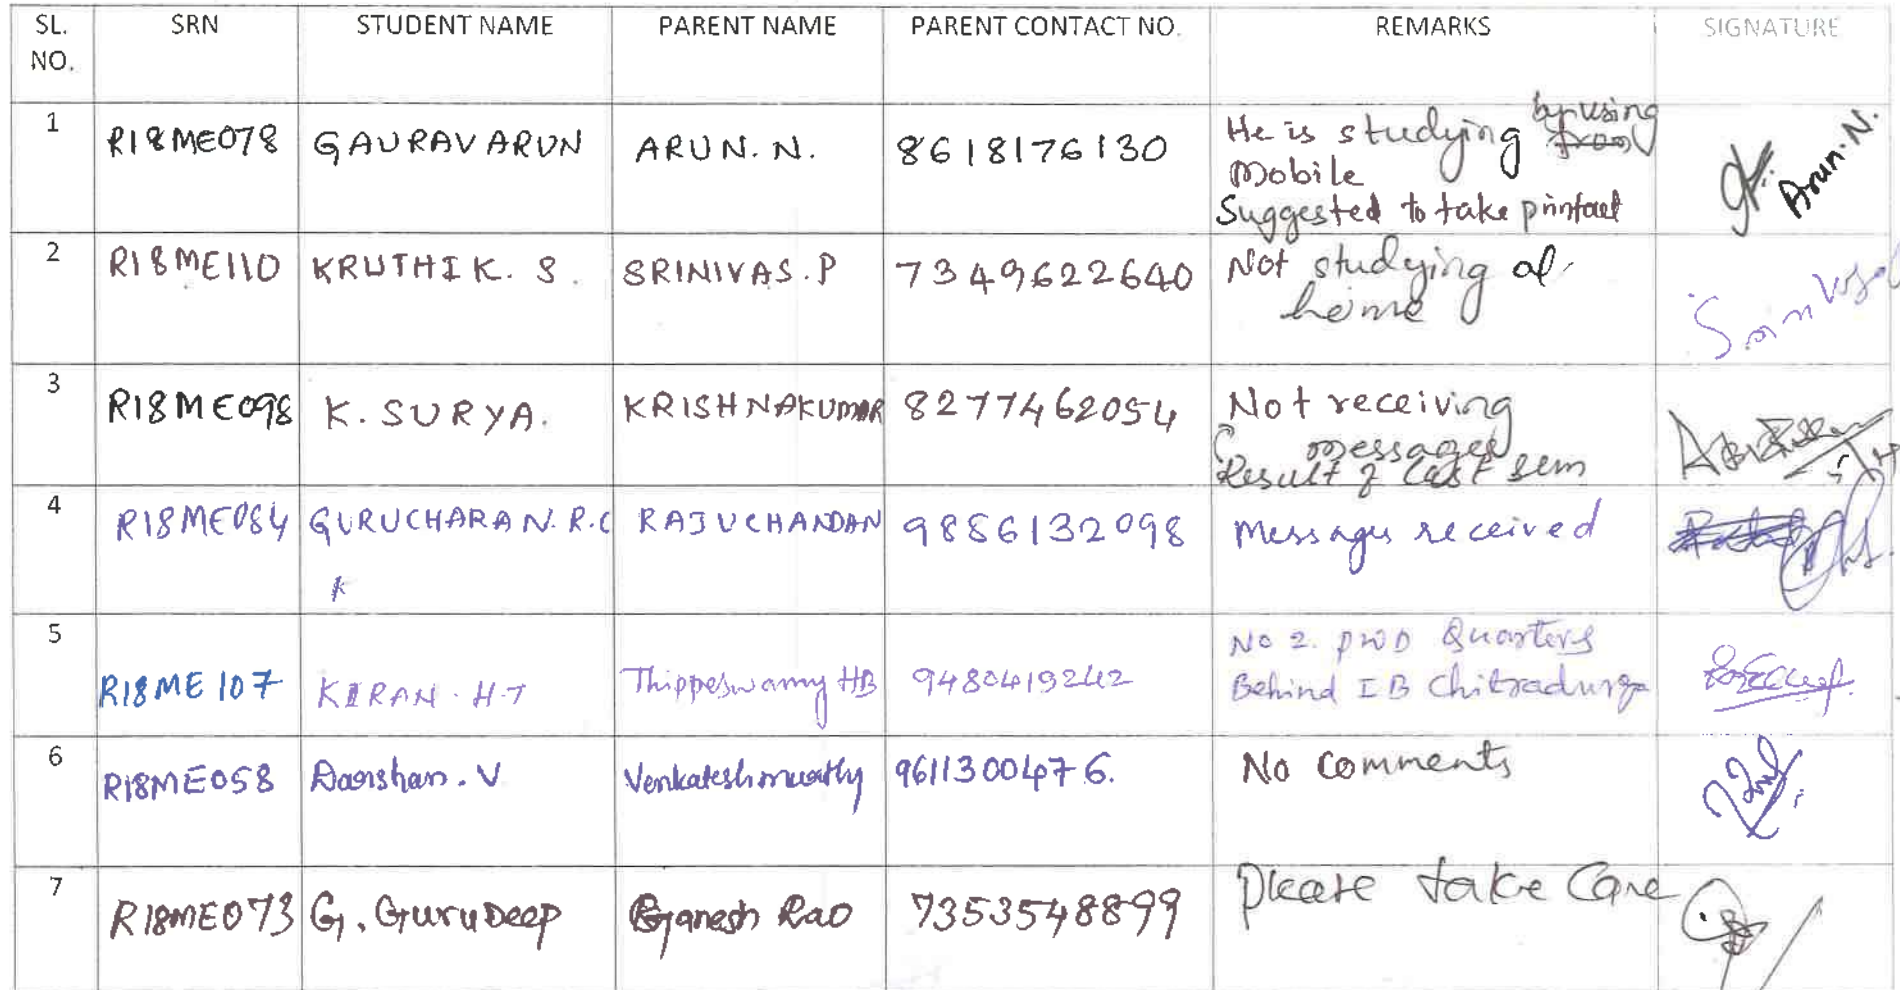 SL. NO. SRN STUDENT NAME PARENT NAME PARENT CONTACT NO. REMARKS SIGNATURE
1 R18ME078 GAURAV ARUN ARUN. N. 8618176130 He is studying by using
Mobile
Suggested to take printout
Arun. N.
2 R18ME110 KRUTHIK. S. SRINIVAS. P 7349622640 Not studying at
home
3 R18ME098 K. SURYA. KRISHNAKUMAR 8277462054 Not receiving
messages
Result of last sem
4 R18ME084 GURUCHARAN. R. C RAJUCHANDAN 9886132098 Messages received
K
5 R18ME107 KIRAN. H.T Thippeswamy HB 9480419242 No 2. PWD Quarters
Behind IB Chitradurga
6 R18ME058 Darshan. V Venkateshmurthy 9611300476. No Comments
7 R18ME073 G. GuruDeep Ganesh Rao 7353548899 please take Care